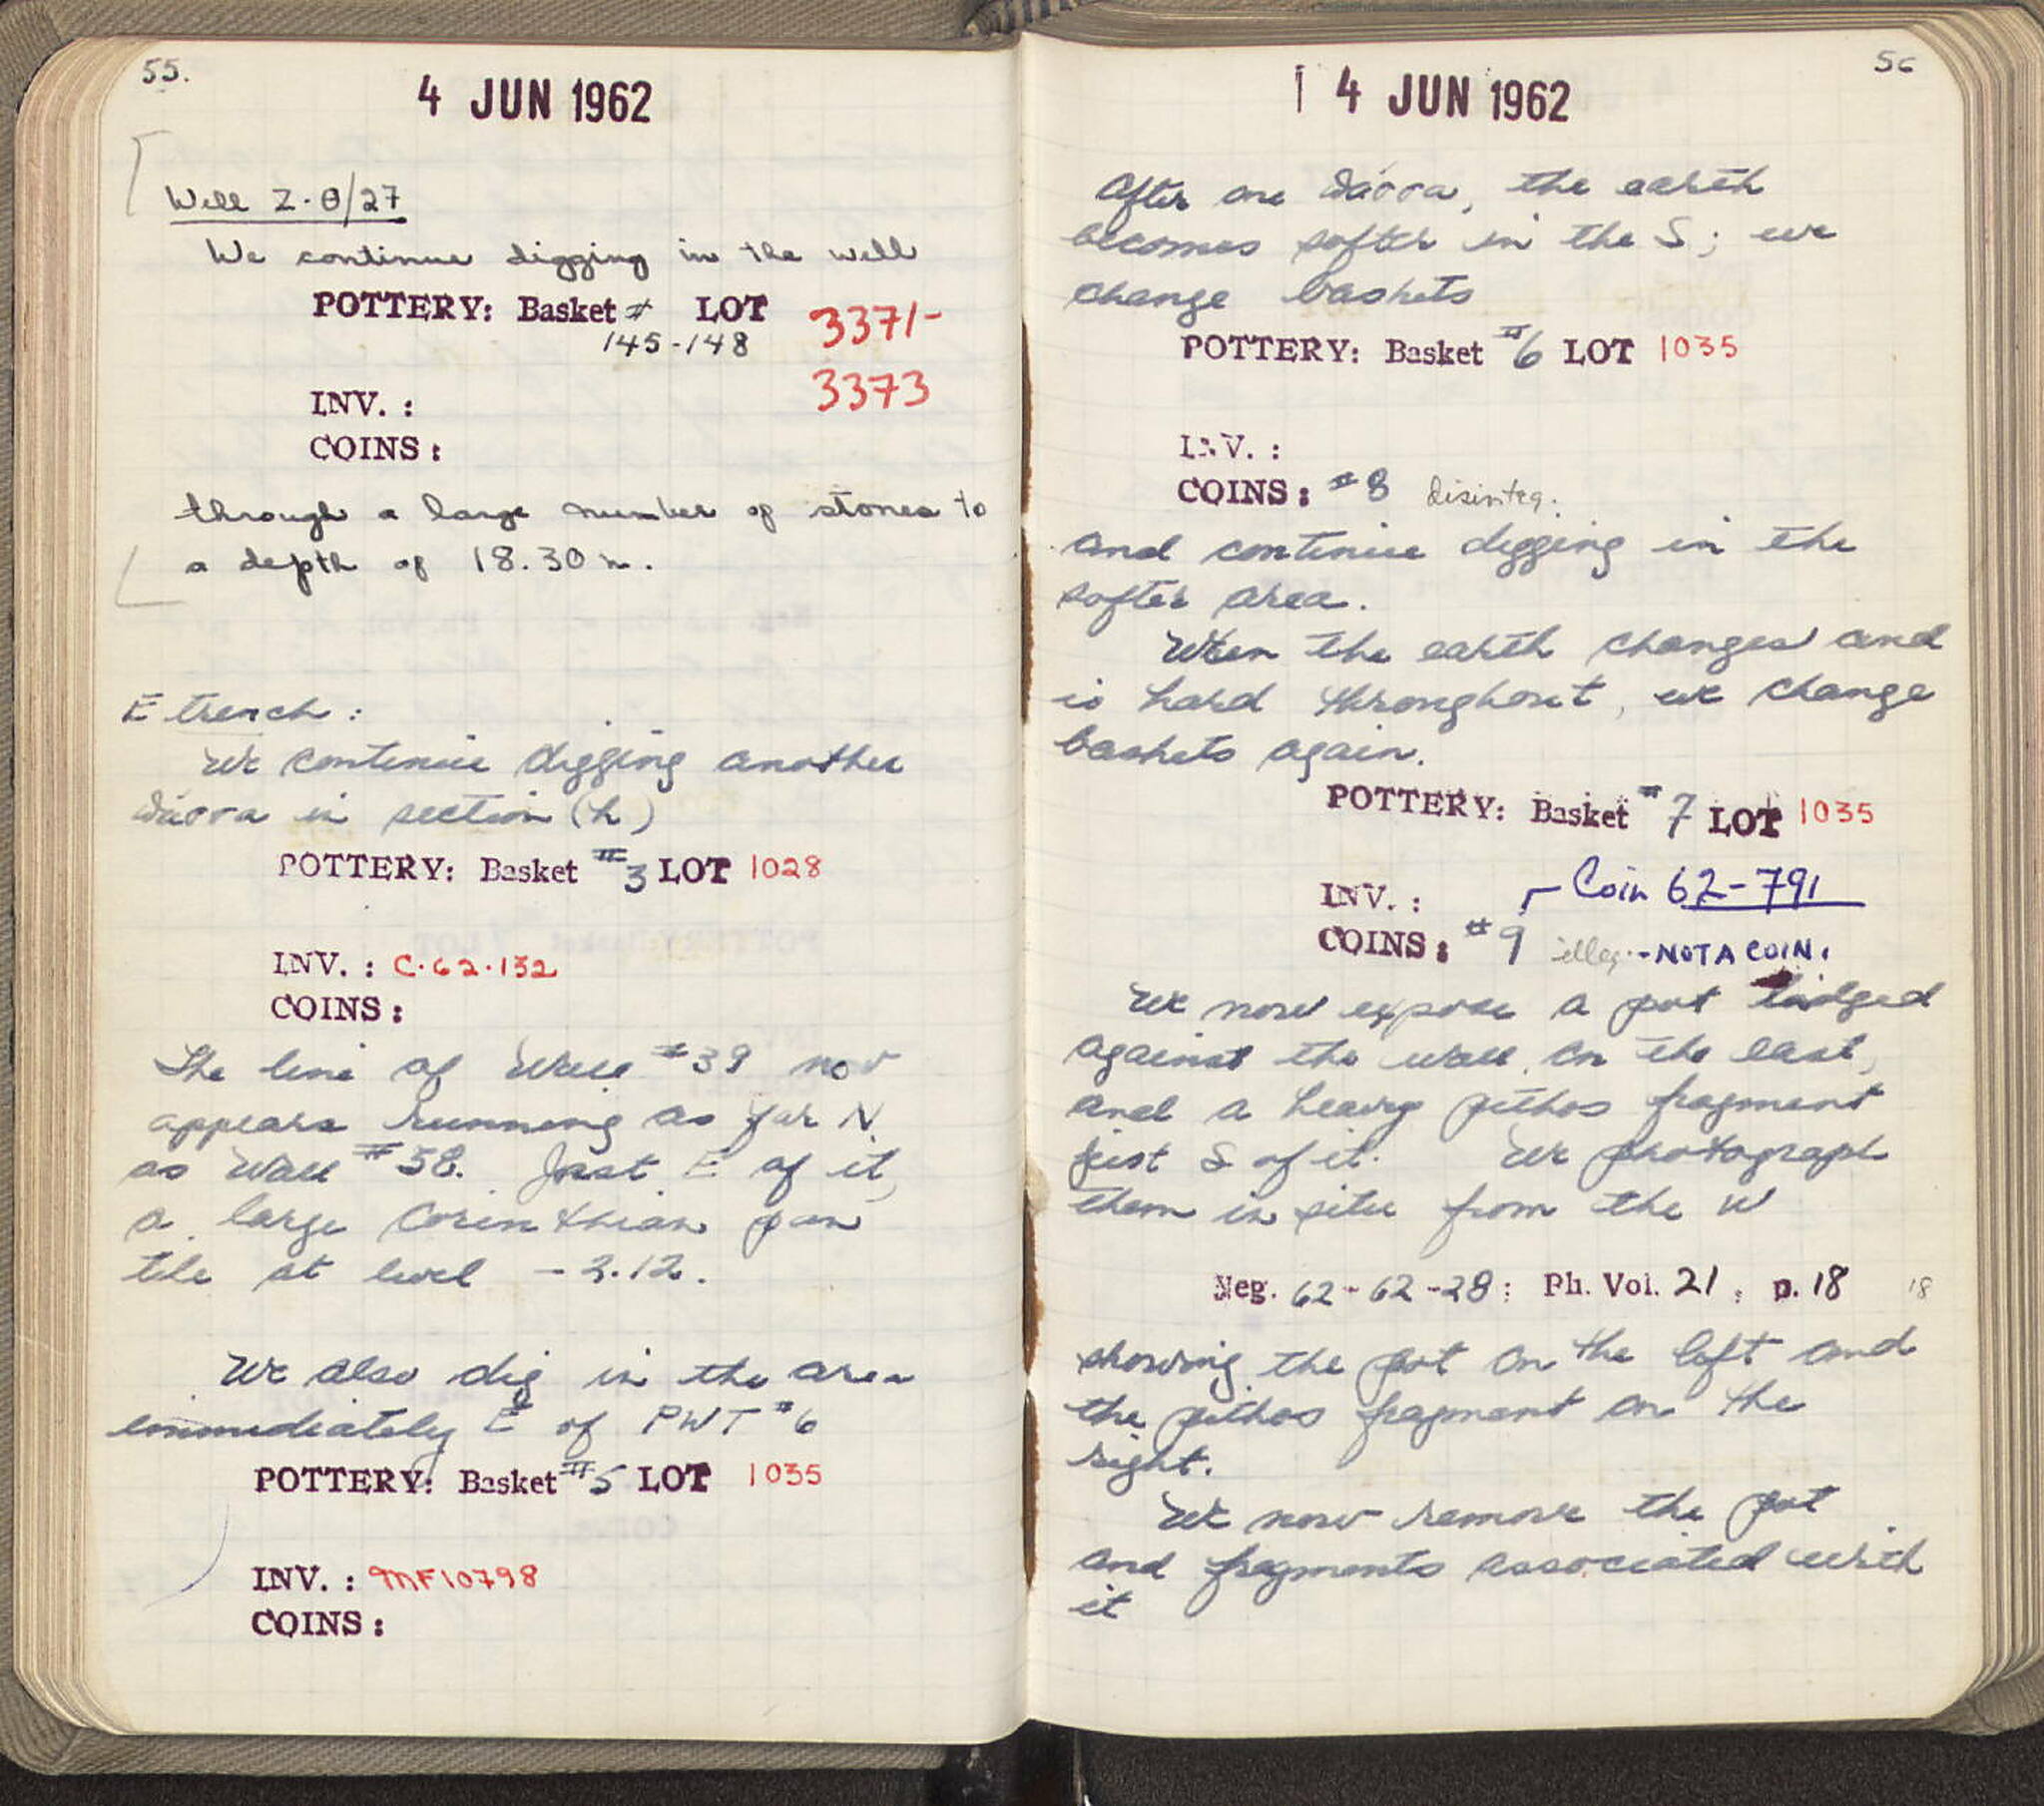 55.
4 JUN 1962
Well Z-Θ/27
We continue digging in the well
POTTERY: Basket # LOT 3371-
145-148
3373
INV. :
COINS :
through a large number of stones to
a depth of 18.30 m.
E trench :
We continue digging another
dàcca in section (h)
POTTERY: Basket #3 LOT 1028
INV. : C.62.132
COINS :
The line of Wall #39 now
appears running as far N.
as Wall #58. Just E of it,
a large Corinthian pan
tile at level -2.12.
We also dig in the area
immediately E of PWT #6
POTTERY: Basket #5 LOT 1035
INV. : MF10798
COINS :
56
4 JUN 1962
After one dàcca, the earth
becomes softer in the S; we
change baskets
POTTERY: Basket #6 LOT 1035
INV. :
COINS : #8 disinteg.
and continue digging in the
softer area.
When the earth changes and
is hard throughout, we change
baskets again.
POTTERY: Basket #7 LOT 1035
INV. : Coin 62-791
COINS : #9 illeg. - NOT A COIN.
We now expose a pot lodged
against the wall on the east,
and a heavy pithos fragment
just S of it. We photograph
them in situ from the W
Neg. 62-62-28; Ph. Vol. 21, p. 18 18
showing the pot on the left and
the pithos fragment on the
right.
We now remove the pot
and fragments associated with
it